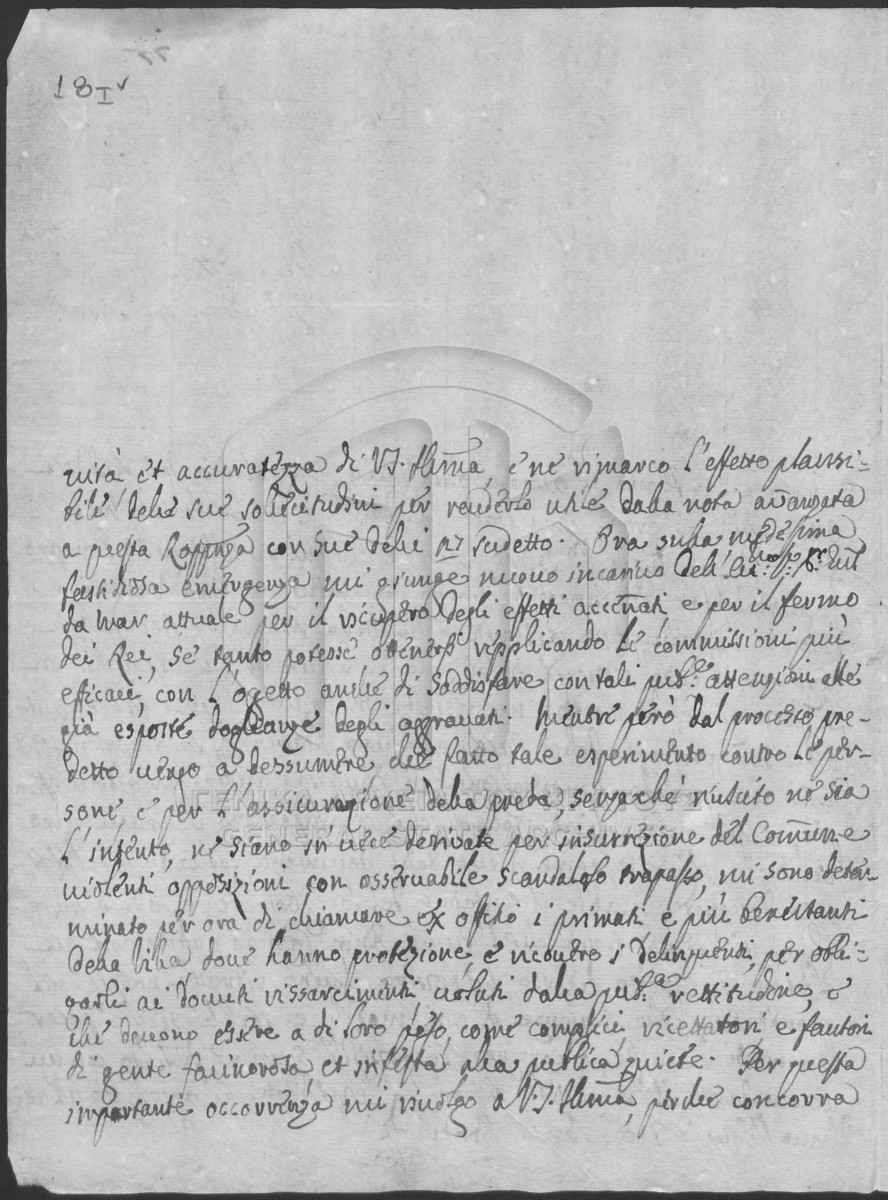 18 I v
vità et accuratezza di V.S. Illma, e ne rimarco l'effetto plausi:
bile delle sue sollecitudini per renderlo utile dalla nota avanzata
a questa Rappnza con sue delli 27 sudetto. Ora sulla medesima
fastidiosa emergenza mi giunge nuovo incarico dell'
da Mar attuale per il ricupero degli effetti accennati e per il fermo
dei Rei, se tanto potesse ottenersi replicando le commissioni più
efficaci, con l'ogetto anche di soddisfare con tali pub.e attenzioni alle
già esposte doglianze degli aggravati. Mentre però dal processo pre-
detto vengo a dessumere che fatto tale esperimento contro le per-
sone, e per l'assicurazione della preda, senza che riuscito ne sia
l'intento, ne siano in vece derivate per insurrezione del Comune
violenti opposizioni con osservabile scandaloso trapasso, mi sono deter-
minato per ora di chiamare ex offitio i primati e più benestanti
della Villa, dove hanno protezione, e ricovero i delinquenti, per obli-
garli ai dovuti rissarcimenti voluti dalla pub.a rettitudine, e
che devono essere a di loro peso, come complici, ricettatori e fautori
di gente facinorosa et infesta alla publica quiete. Per questa
importante occorrenza mi rivolgo a V.S. Illma, perche concorra
ΓΕΝΙΚΑ ΑΡΧΕΙΑ ΤΟΥ ΚΡΑΤΟΥΣ
GENERAL STATE ARCHIVES